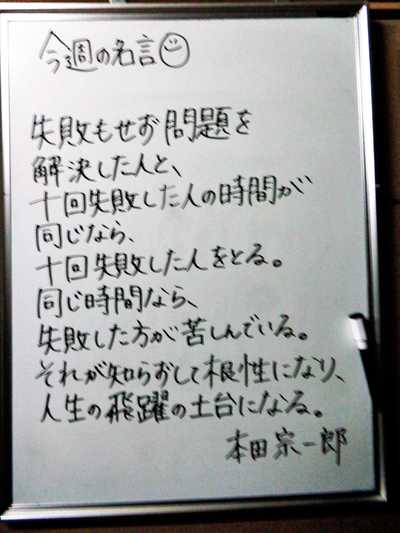 今週の名言
失敗もせず問題を
解決した人と、
十回失敗した人の時間が
同じなら、
十回失敗した人をとる。
同じ時間なら、
失敗した方が苦しんでいる。
それが知らずして根性になり、
人生の飛躍の土台になる。
本田宗一郎